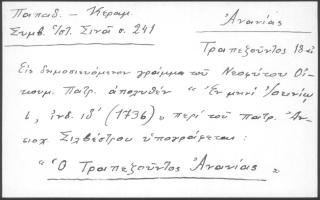 Παπαδ. - Κεραμ.
Συμβ. Ἱστ. Σινᾶ σ. 241
Ἀνανίας
Τραπεζοῦντος 18 αἰ
Εἰς δημοσιευόμενον γράμμα τοῦ Νεοφύτου Οἰ-
κουμ. Πατρ. ἀπολυθὲν "Ἐν μηνὶ Ἰουνίῳ
ι, ἰνδ. ιδ' (1736)" περὶ τοῦ πατρ. Ἀν-
τιοχ. Σιλβέστρου ὑπογράφεται:
"Ὁ Τραπεζοῦντος Ἀνανίας"